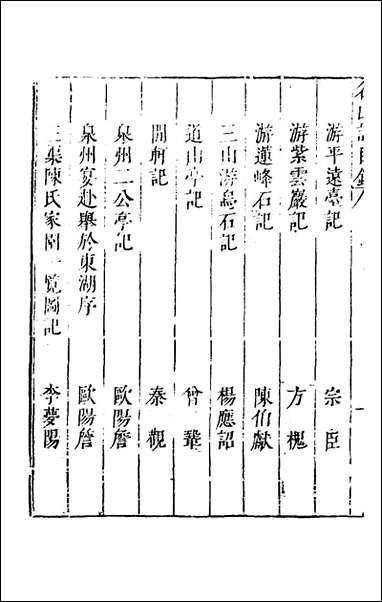 游平遠臺記 宗臣
游紫雲巖記 方槐
游蓮峰石記 陳伯獻
三山游烏石記 楊應詔
道山亭記 曾鞏
閒軒記 秦觀
泉州二公亭記 歐陽詹
泉州宴赴舉於東湖序 歐陽詹
陳氏家園一覽圖記 李夢陽